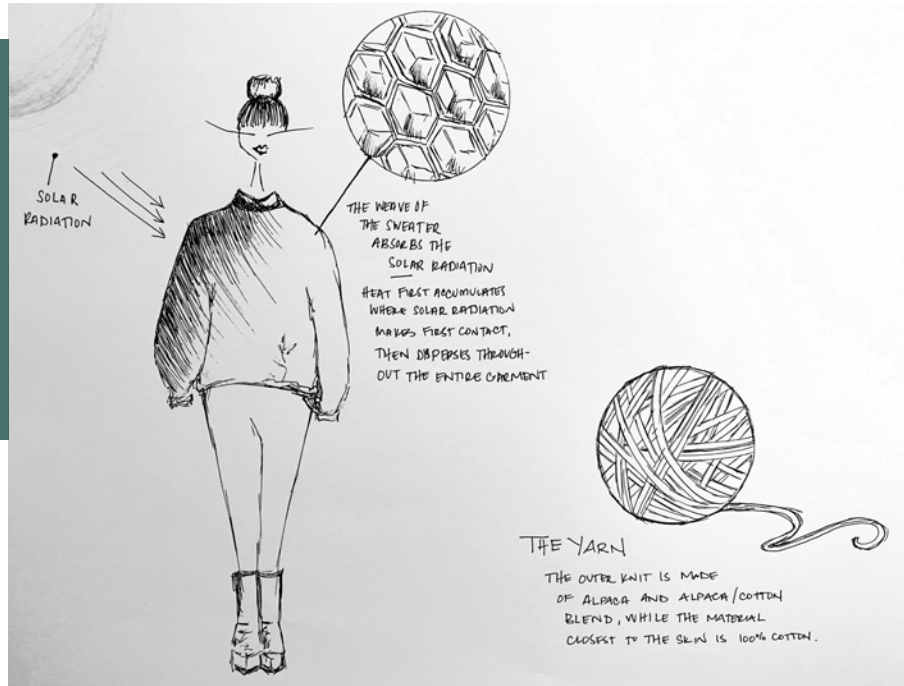 SOLAR
RADIATION
THE WEAVE OF
THE SWEATER
ABSORBS THE
SOLAR RADIATION
HEAT FIRST ACCUMULATES
WHERE SOLAR RADIATION
MAKES FIRST CONTACT,
THEN DISPERSES THROUGH-
OUT THE ENTIRE GARMENT
THE YARN
THE OUTER KNIT IS MADE
OF ALPACA AND ALPACA/COTTON
BLEND, WHILE THE MATERIAL
CLOSEST TO THE SKIN IS 100% COTTON.